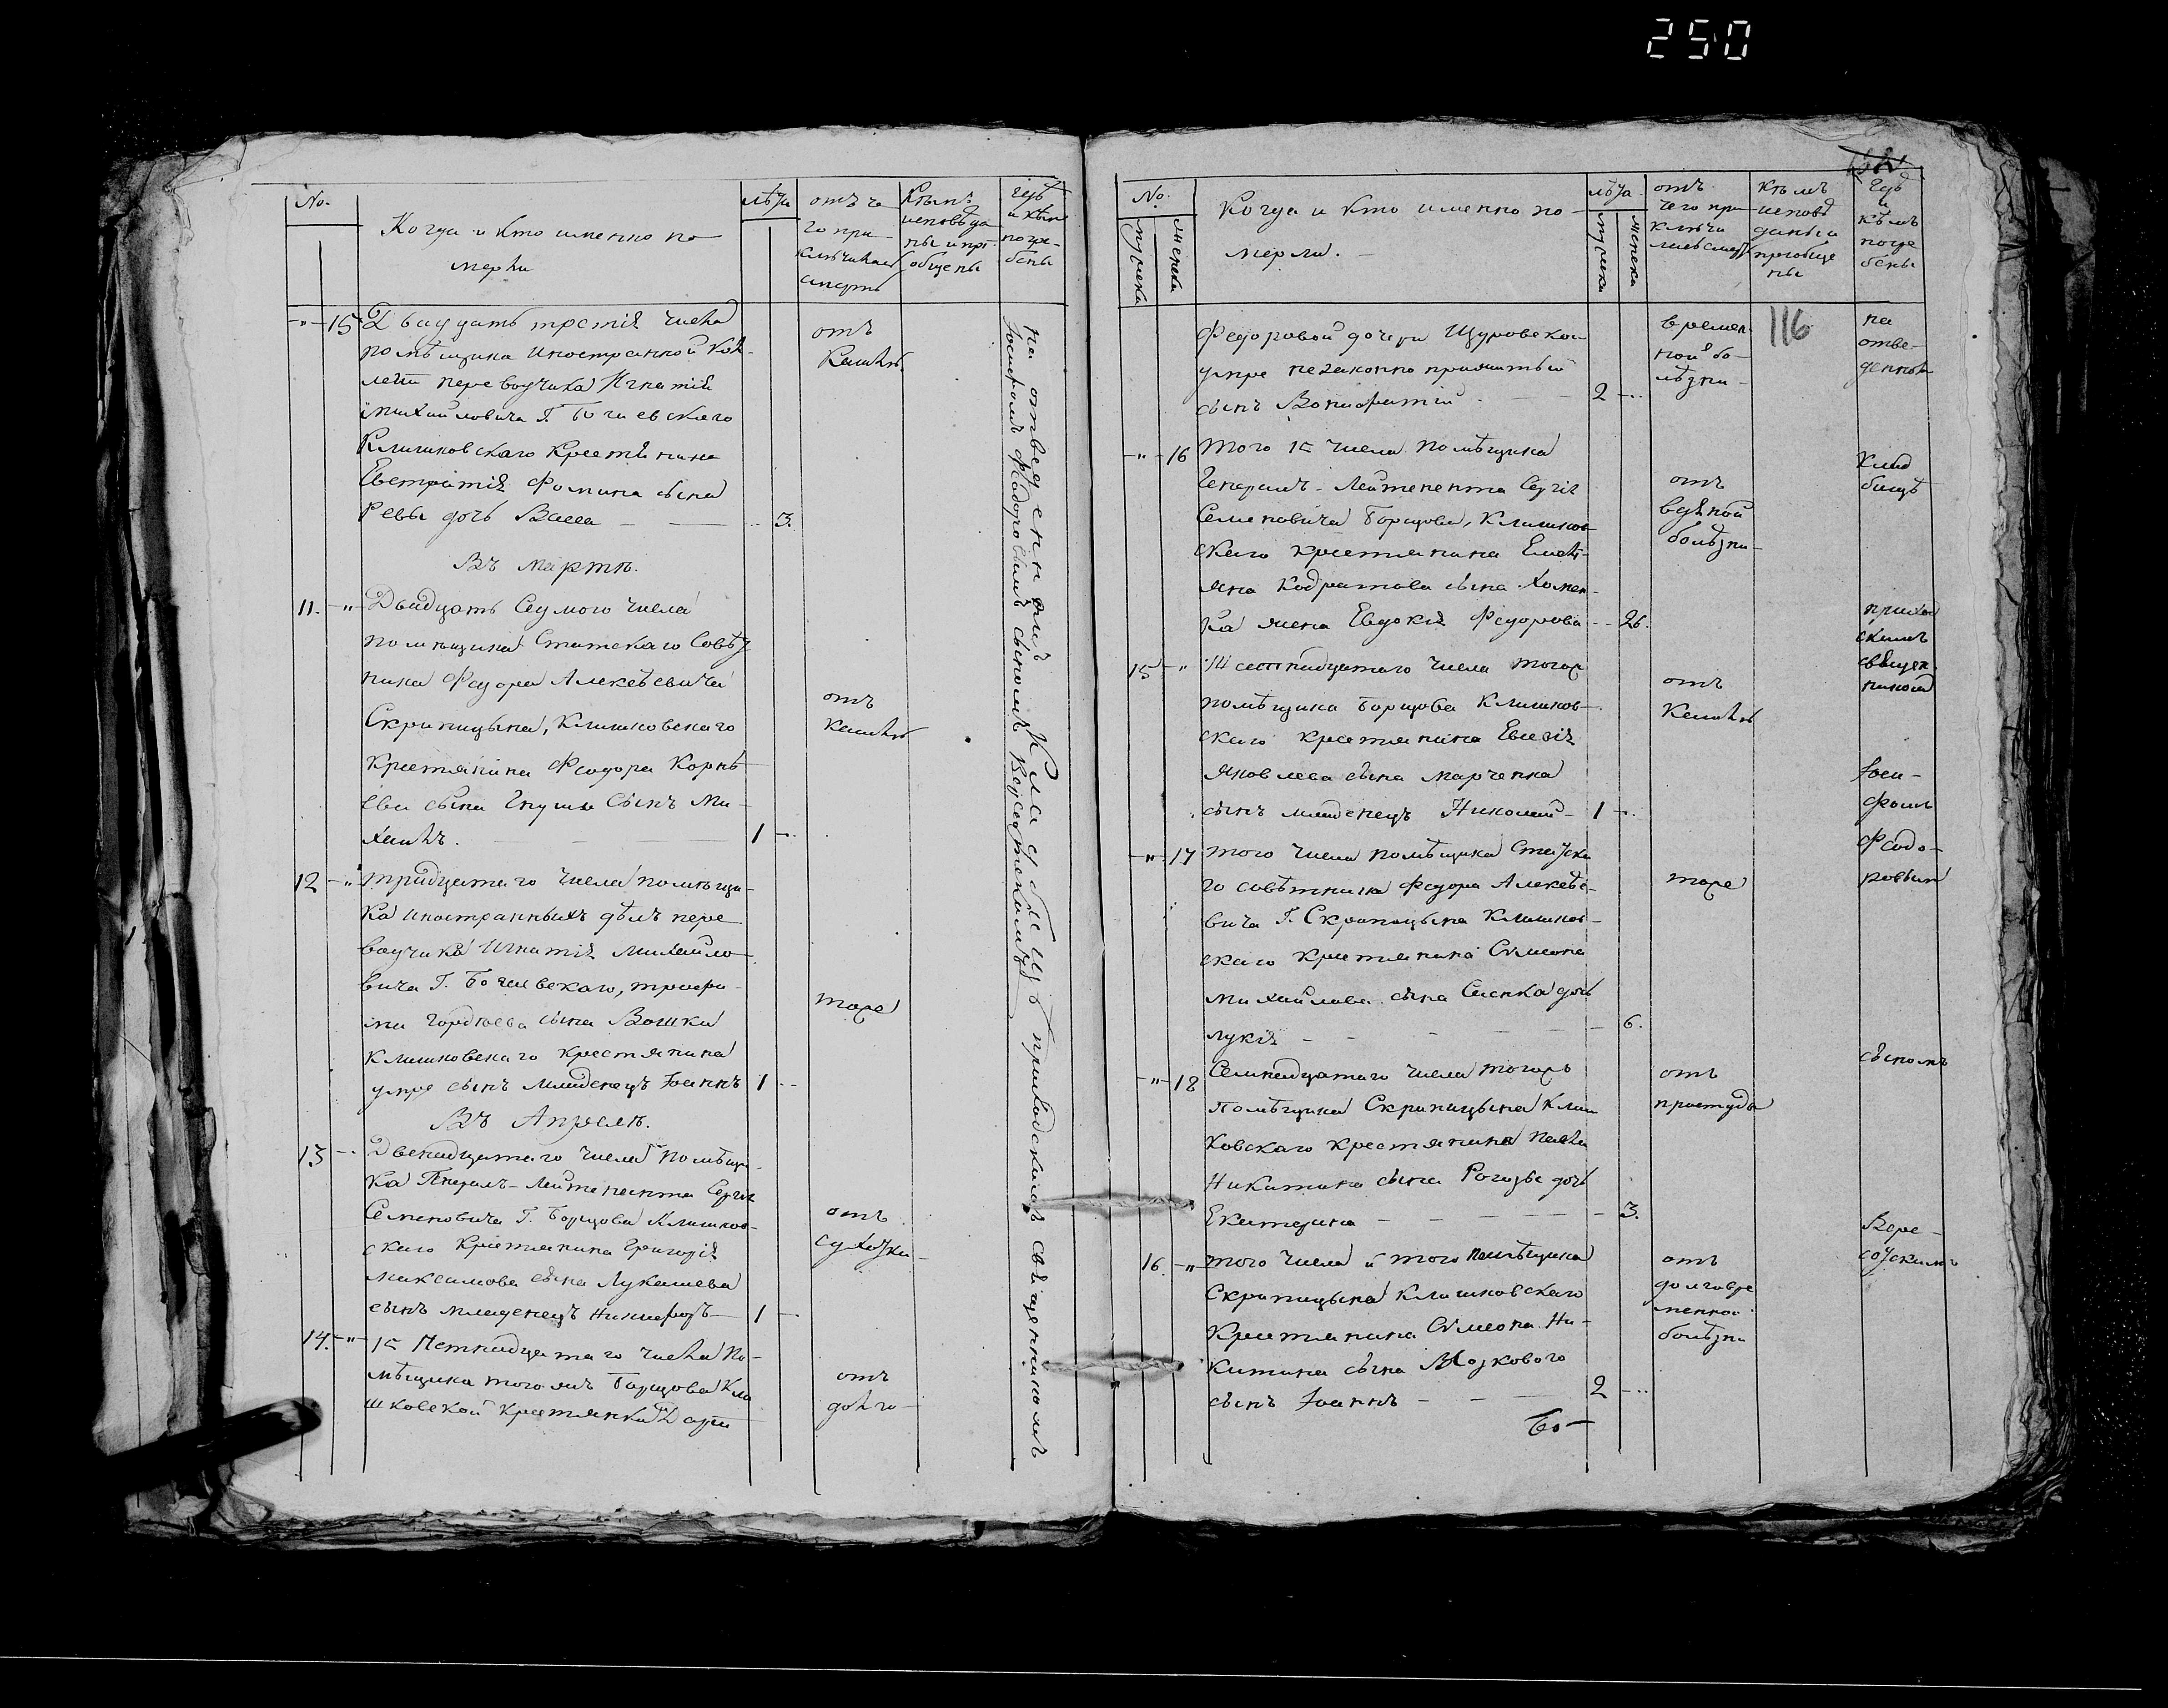 250
No.
Когда и кто именно по
мерли
лѣта
отъ че
го при
ключилась
смерть
Кѣмъ
исповѣда
ны и прі
общены
гдѣ
и кѣм
погре-
бены
15 Двадцать третія числа
помѣщика иностранной кол-
легіи переводчика Игнатія
Михайловича Г.
Клишковскаго крестьянина
Евстратія Фомина сына
Ревы дочь Васса 3.
отъ
кашля
Въ Мартѣ.
11. Двадцать седмого числа
помѣщика Статскаго Совѣт
ника Федора Алексѣевича
Скрипицына, Клишковскаго
крестьянина Феодора Корнѣ
ева сына сынъ Ми-
хаилъ. 1
отъ
кашля
12 тридцатаго числа помѣщи-
ка иностранныхъ дѣлъ пере
водчика Игнатія Михайло
вича Г. трофи
ма Гордѣева сына Вошки
Клишковскаго крестьянина
умре сынъ младенецъ Іоаннъ 1
тоже
Въ Апрелѣ.
13 Двенадцатаго числа помѣщи-
ка Генералъ-Лейтенанта Сергія
Семеновича Г. Борщова Клишков-
скаго крестьянина Григорія
Максимова сына Лукашева
сынъ младенецъ Никифоръ 1
отъ
сухотки
14. 15 Петнадцатаго числа по-
мѣщика того жъ Борщова Кли
шковской крестьянки Дарьи
отъ
долго-
на отведенномъ кладбищѣ приходскимъ священникомъ
Іосифомъ Феодоровымъ сыномъ
No.
мужеска
женска
Когда и кто именно по-
мерли.
лѣта
мужеска
женска
отъ
чего при
ключи
лась смерть
Кѣмъ
исповѣ
даны и
пріобще
ны
Гдѣ
и
кѣмъ
погре
бены
116
Федоровой дочери Щуровской
умре незаконно прижитый
сынъ Вонифатій 2
времен
ной бо-
лѣзни
на
отве-
денном
16 Того 15 числа помѣщика
Генералъ-Лейтенанта Сергія
Семеновича Борщова, Клишков-
скаго крестьянина Емель-
яна Кодратова сына Хомен-
ка жена Евдокія Федорова 26.
отъ
водяной
болѣзни
клад
бищѣ
приход
скимъ
священ
никомъ
15 Шестнадцатаго числа тогожъ
помѣщика Борщова Клишков-
скаго крестьянина Евсевія
Яковлева сына Марченка
сынъ младенецъ Николай 1
отъ
кашля
Іоси-
фомъ
Феодо-
ровым
17 того числа помѣщика Статска
го совѣтника Федора Алексѣе-
вича Г. Скрипицына Клишков-
скаго крестьянина Симеона
Михайлова сына Сенка дочь
Лукія 6.
тоже
18 Семнадцатаго числа тогожъ
помѣщика Скрипицына Клиш
ковскаго крестьянина Павла
Никитина сына Рогозы дочь
Екатерина 3.
отъ
простуды
сыномъ
16. того числа и того помѣщика
Скрипицына Клишковскаго
крестьянина Симеона Ни-
китина сына Мозкового
сынъ Іоаннъ 2
отъ
долговре
менной
болѣзни
Во